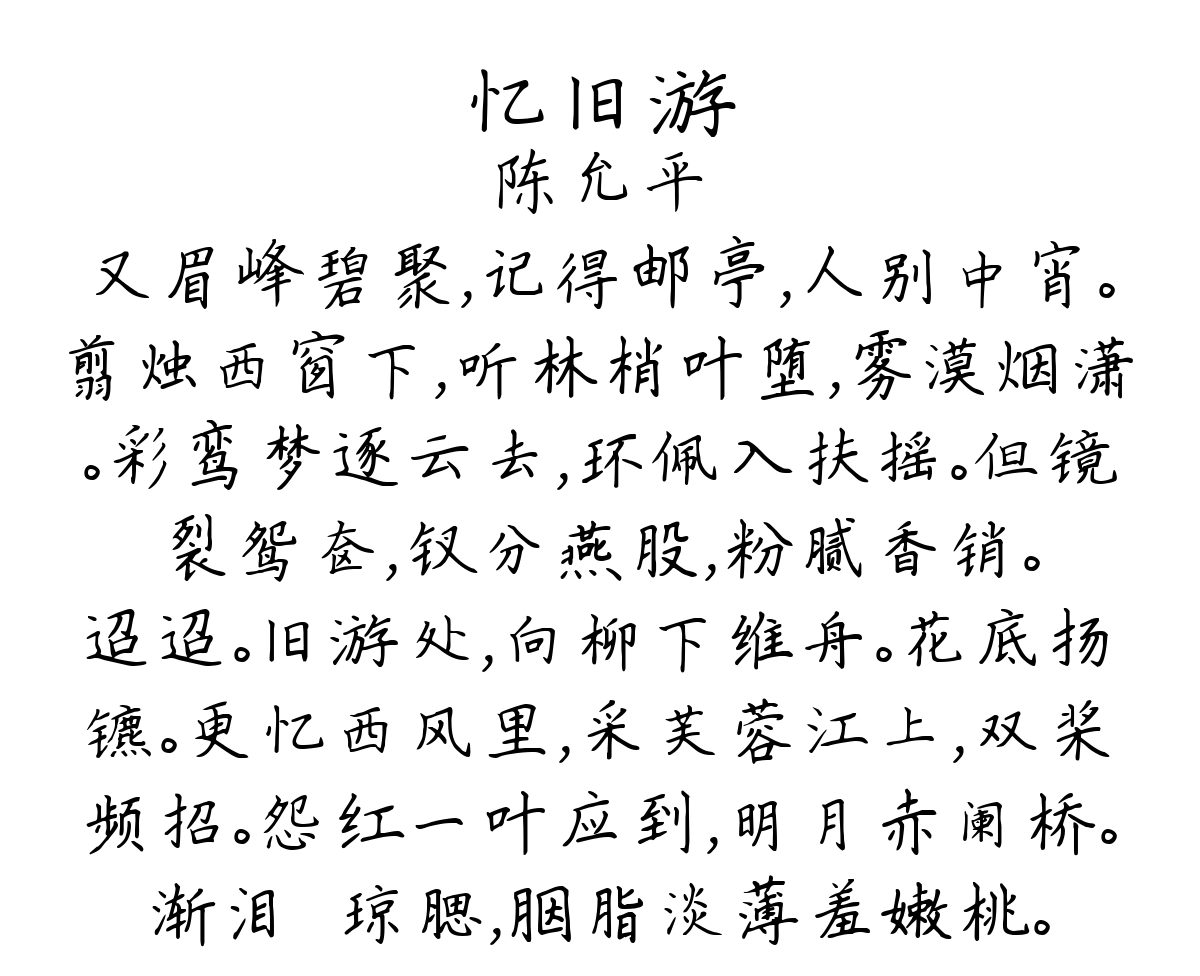 忆旧游
陈允平
又眉峰碧聚,记得邮亭,人别中宵。
剪烛西窗下,听林梢叶堕,雾漠烟潇
。彩鸾梦逐云去,环佩入扶摇。但镜
裂鸳奁,钗分燕股,粉腻香销。
迢迢。旧游处,向柳下维舟。花底扬
镳。更忆西风里,采芙蓉江上,双桨
频招。怨红一叶应到,明月赤阑桥。
渐泪 琼腮,胭脂淡薄羞嫩桃。